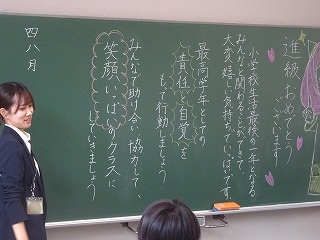 進級おめでとう
ございます!
小学校生活最後の一年となる
みんなと関わることができて
大変嬉しい気持ちでいっぱいです。
最高学年としての
責任と自覚を
もって行動しましょう
みんなで助け合い協力して、
笑顔いっぱいのクラスに
していきましょう
四月八日